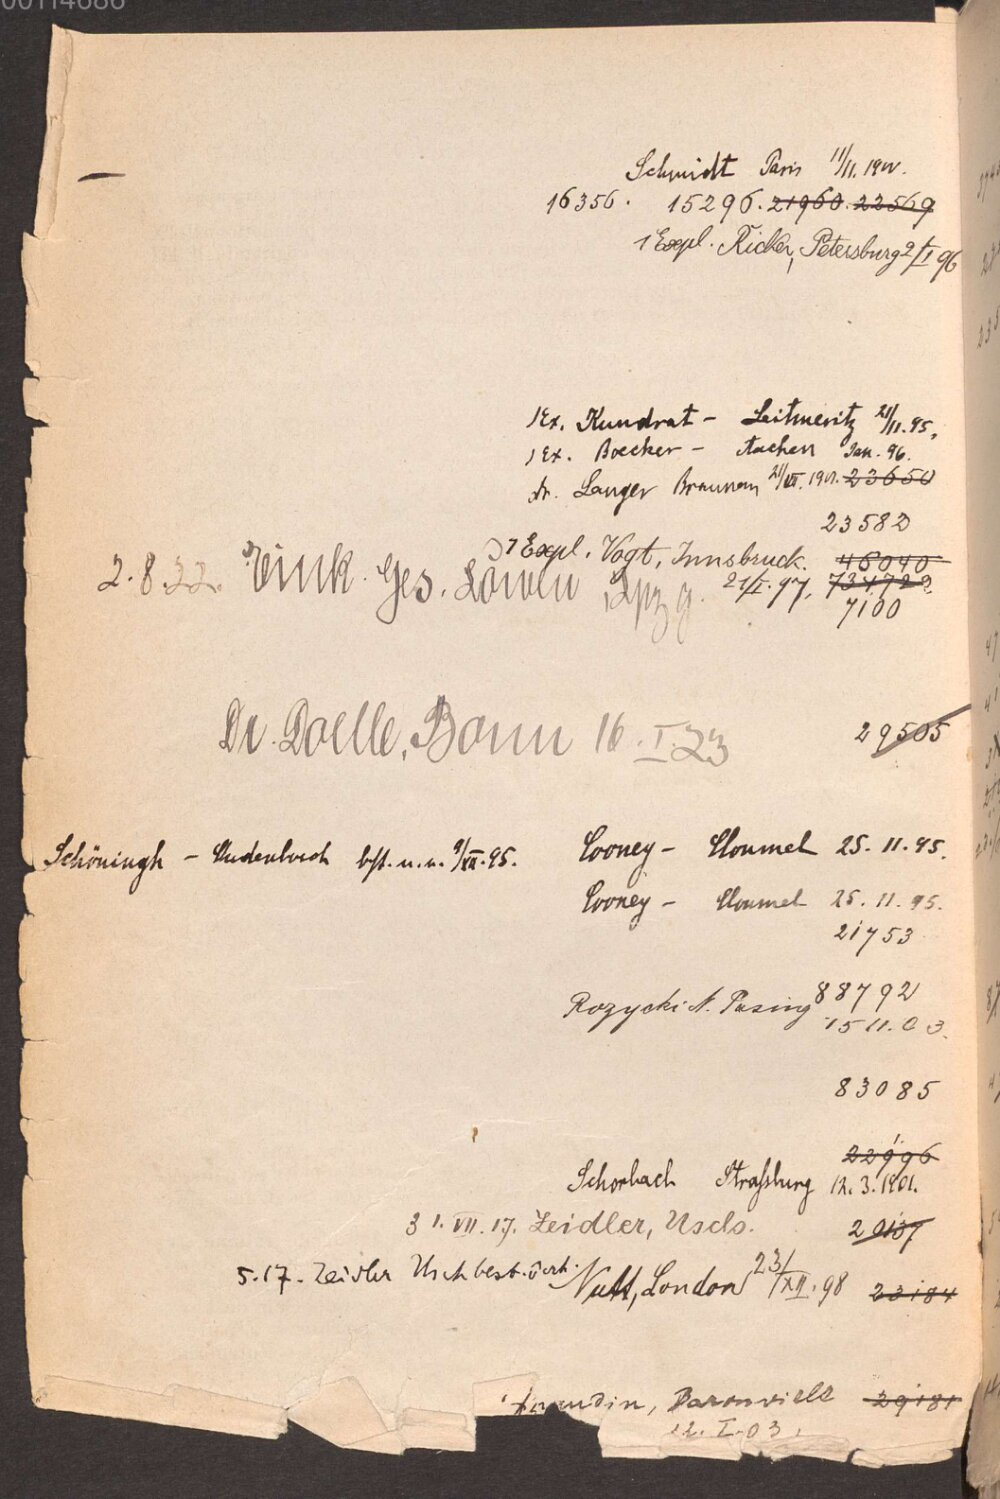 00114686
Schmidt Paris 11/11. 190
16356. 15296. 21960. 22569
1 Expl. Ricker, Petersburg 2/I 96
1 Ex. Kundrat – Leitmeritz 21/11. 95.
1 Ex. Boecker – Aachen Jan. 96.
dr. Langer Braunau 21/VII. 1901. 23650
23582
1 Expl. Vogt, Innsbruck. 46040
2. 8 22. Rink. Ges. Löwen Lpzg. 21/I. 97, 734722
7100
Dr. Doelle, Bonn 16. I. 23 29505
Schöningh – bst. u. n. 9/XII. 95. Cooney – Clonmel 25. 11. 95.
Cooney – Clonmel 25. 11. 95.
21753
Rozycki N. Pasing 88792
15 11. 03.
83085
22996
Schorbach Straßburg 12. 3. 1901.
31. VII. 17. Zeidler, Uschs. 20137
5. 17. Zeidler Usch best. Nutt, London 23/XII. 98 23184
29181
12. I. 03.